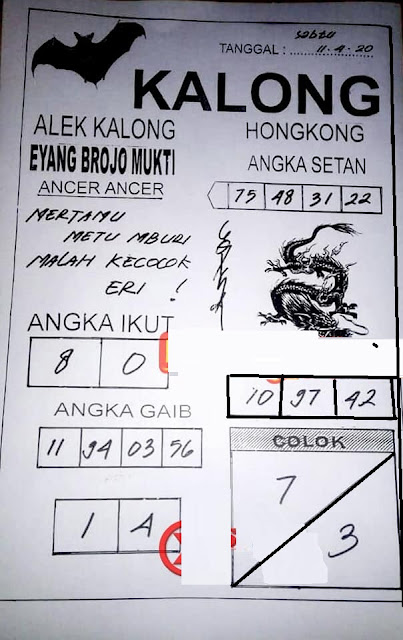 Sabtu
TANGGAL : 11-4-20
KALONG
ALEK KALONG
EYANG BROJO MUKTI
ANCER ANCER
MERTAMU
METU MBURI
MALAH KECOCOK
ERI !
HONGKONG
ANGKA SETAN
75 48 31 22
ANGKA IKUT
8 0
10 97 42
ANGKA GAIB
11 94 03 56
1 4
COLOK
7
3